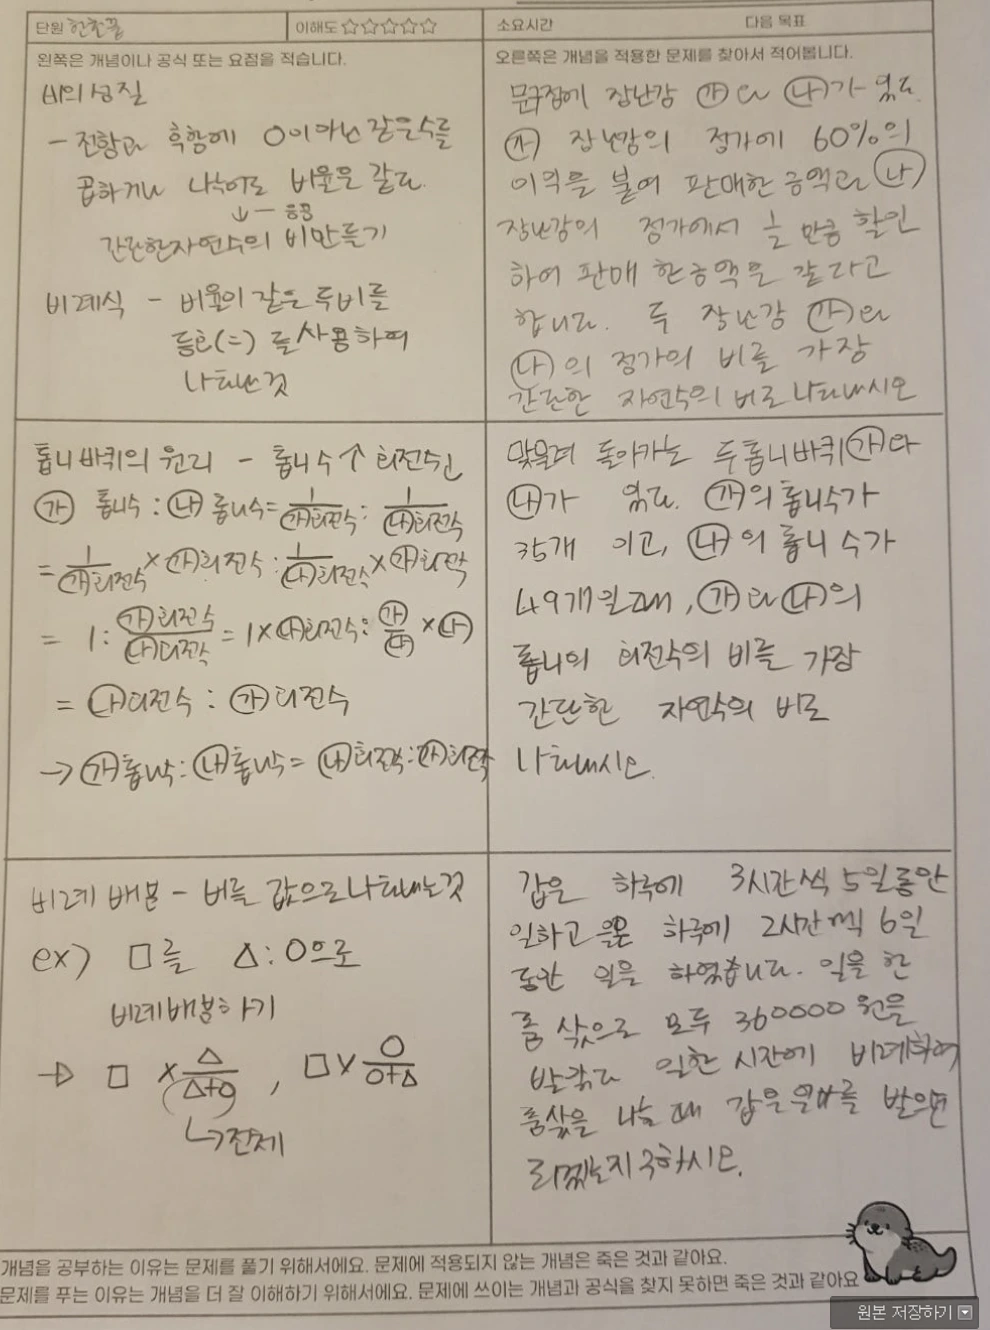 단원 이해도 ☆☆☆☆☆ 소요시간 다음 목표
왼쪽은 개념이나 공식 또는 요점을 적습니다.
비의 성질
- 전항과 후항에 0이 아닌 같은 수를
곱하거나 나누어도 비율은 같다.
↓ - 응용
간단한 자연수의 비 만들기
비례식 - 비율이 같은 두 비를
등호(=)를 사용하여
나타낸 것
오른쪽은 개념을 적용한 문제를 찾아서 적어봅니다.
문구점에 장난감 ㉮와 ㉯가 있다.
㉮ 장난감의 정가에 60%의
이익을 붙여 판매한 금액과 ㉯
장난감의 정가에서 만큼 할인
하여 판매 한 금액은 같다고
합니다. 두 장난감 ㉮와
㉯의 정가의 비를 가장
간단한 자연수의 비로 나타내시오
톱니바퀴의 원리 - 톱니수↑ 회전수↓
㉮ 톱니수 : ㉯ 톱니수 = 1/㉮회전수 : 1/㉯회전수
= 1/㉮회전수 × ㉮회전수 : 1/㉯회전수 × ㉮회전수
= 1 : ㉮회전수/㉯회전수 = 1 × ㉯회전수 : ㉮/㉯ × ㉯
= ㉯회전수 : ㉮회전수
→ ㉮톱니수 : ㉯톱니수 = ㉯회전수 : ㉮회전수
맞물려 돌아가는 두 톱니바퀴 ㉮와
㉯가 있다. ㉮의 톱니수가
35개 이고, ㉯의 톱니 수가
49개일 때, ㉮와 ㉯의
톱니의 회전수의 비를 가장
간단한 자연수의 비로
나타내시오.
비례 배분 - 비를 값으로 나타내는 것
ex) □를 △:○으로
비례배분하기
→ □ × △/(△+○) , □ × ○/(○+△)
↳전체
갑은 하루에 3시간씩 5일동안
일하고 을은 하루에 2시간씩 6일
동안 일을 하였습니다. 일을 한
품삯으로 모두 360000원을
받았다 일한 시간에 비례하여
품삯을 나눌 때 갑은 얼마를 받으면
되겠는지 구하시오.
개념을 공부하는 이유는 문제를 풀기 위해서에요. 문제에 적용되지 않는 개념은 죽은 것과 같아요.
문제를 푸는 이유는 개념을 더 잘 이해하기 위해서에요. 문제에 쓰이는 개념과 공식을 찾지 못하면 죽은 것과 같아요
원본 저장하기